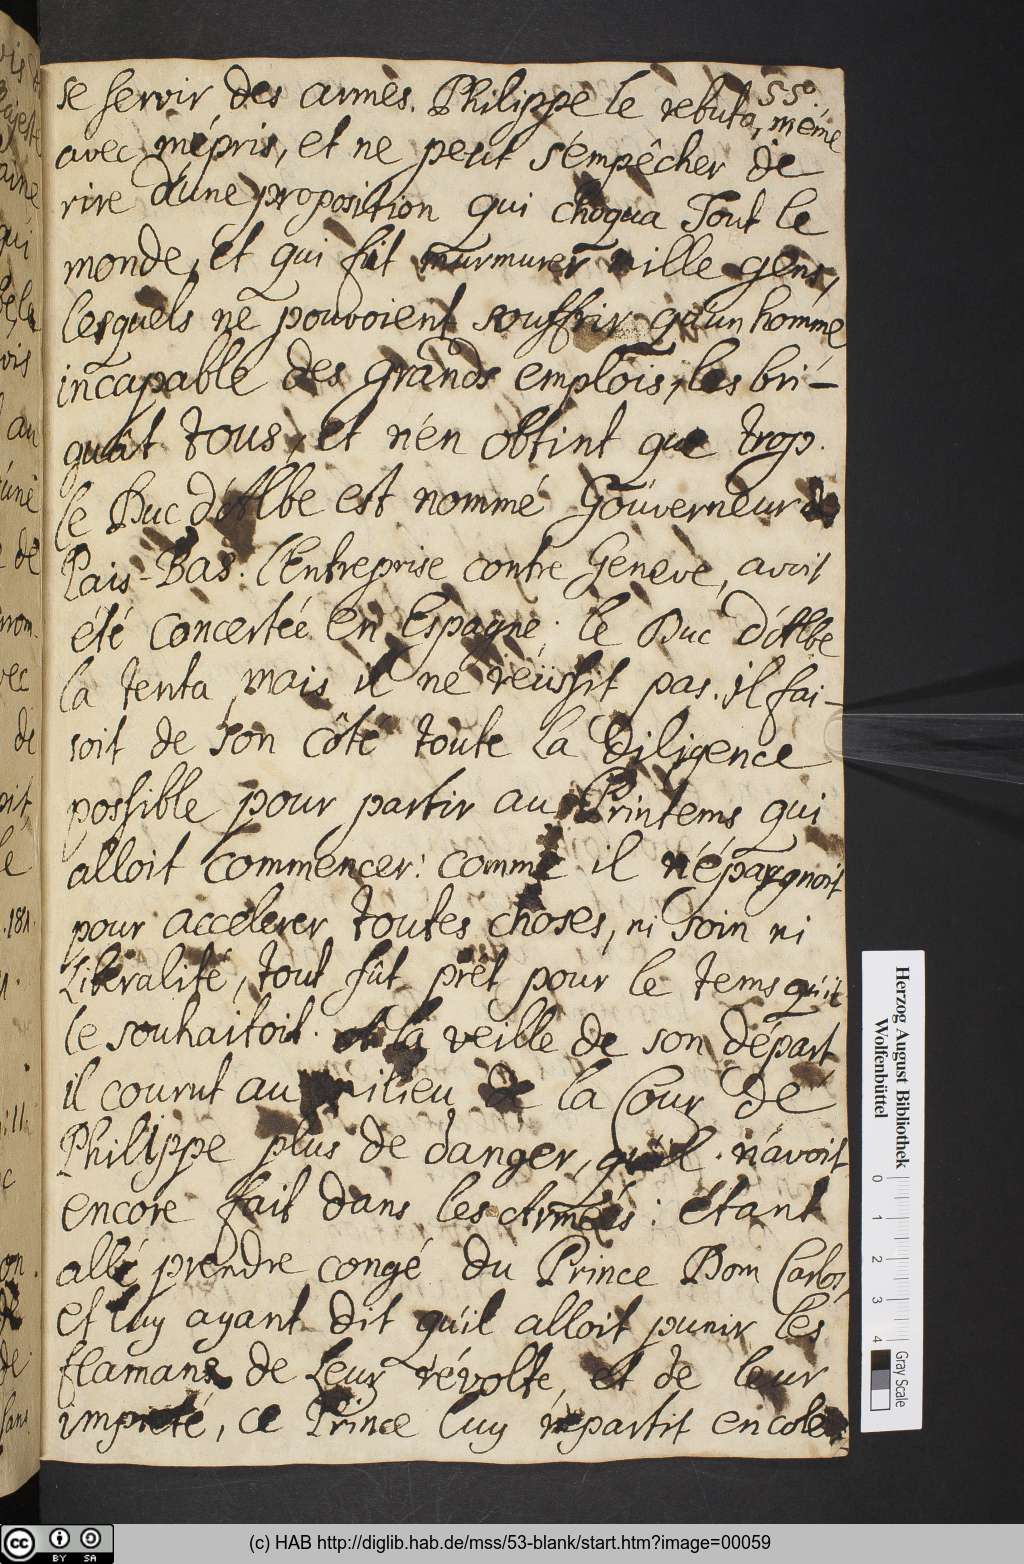 55.
se servir des armes. Philippe le rebuta, même
avec mépris, et ne peut s'empêcher de
rire d'une proposition qui choqua Tout le
monde, et qui fit murmurer mille gens,
lesquels ne pouvoient souffrir qu'un homme
incapable des grands emplois, les bri-
guât tous, et n'en obtint que trop.
le Duc d'Albe est nommé Gouverneur de
Païs-Bas. l'Entreprise contre Geneve, avoit
été concertée en Espagne. le Duc d'Albe
la tenta, mais il ne réüssit pas. il fai-
soit de son côté toute la Diligence
possible pour partir au Printems qui
alloit commencer: comme il n'épargnoit
pour accelerer toutes choses, ni soin ni
Liberalité, tout fût prêt pour le tems qu'il
le souhaitoit. et la veille de son départ
il courut au milieu de la Cour de
Philippe plus de danger, qu'il n'avoit
encore fait dans les Armées: étant
allé prendre congé du Prince Dom Carlos,
et luy ayant dit qu'il alloit punir les
flamans de Leur révolte, et de leur
impieté, ce Prince luy répartit en cole
Herzog August Bibliothek
Wolfenbüttel
0 1 2 3 4
Gray Scale
(c) HAB http://diglib.hab.de/mss/53-blank/start.htm?image=00059
cc BY SA